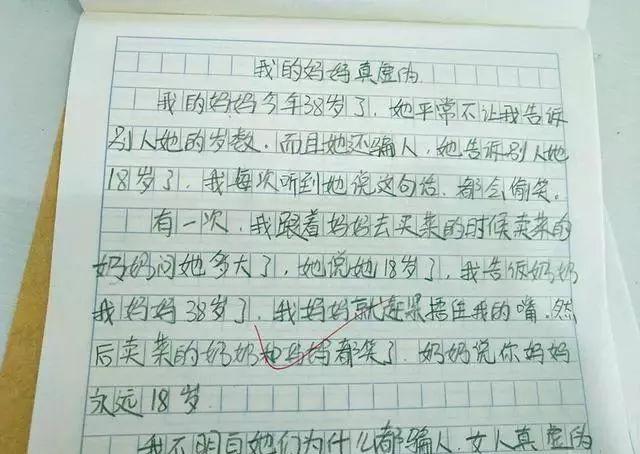 我的妈妈真虚伪
我的妈妈今年38岁了,她平常不让我告诉
别人她的岁数.而且她还骗人,她告诉别人她
18岁了,我每次听到她说这句话,都会偷笑。
有一次,我跟着妈妈去买菜的时候卖菜的
奶奶问她多大了,她说她18岁了,我告诉奶奶
我妈妈38岁了,我妈妈就赶紧捂住我的嘴.然
后卖菜的奶奶和妈妈都笑了.奶奶说你妈妈
永远18岁.
我不明白她们为什么都骗人.女人真虚伪